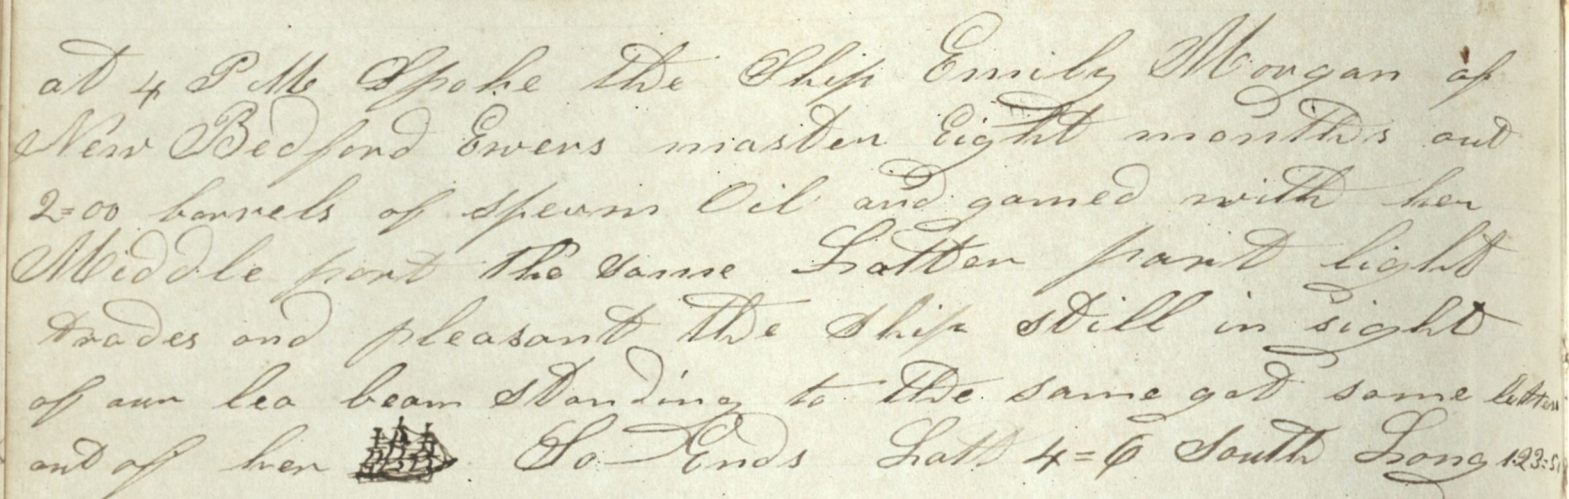 at 4 P M Spoke the Ship Emily Morgan of
New Bedford Ewers master Eight months out
2=00 barrels of sperm Oil and gamed with her
Middle part the same Latter part light
trades and pleasant the ship still in sight
of our lea beam standing to the same got some letters
out of her So Ends Latt 4=6 South Long